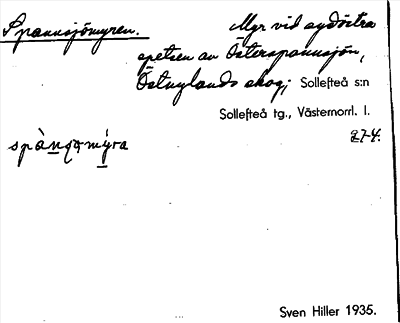 Spannsjömyren. Myr vid sydöstra
spetsen av Österspannsjön,
Östnylands skog; Sollefteå s:n
Sollefteå tg., Västernorrl. l.
274.
Sven Hiller 1935.